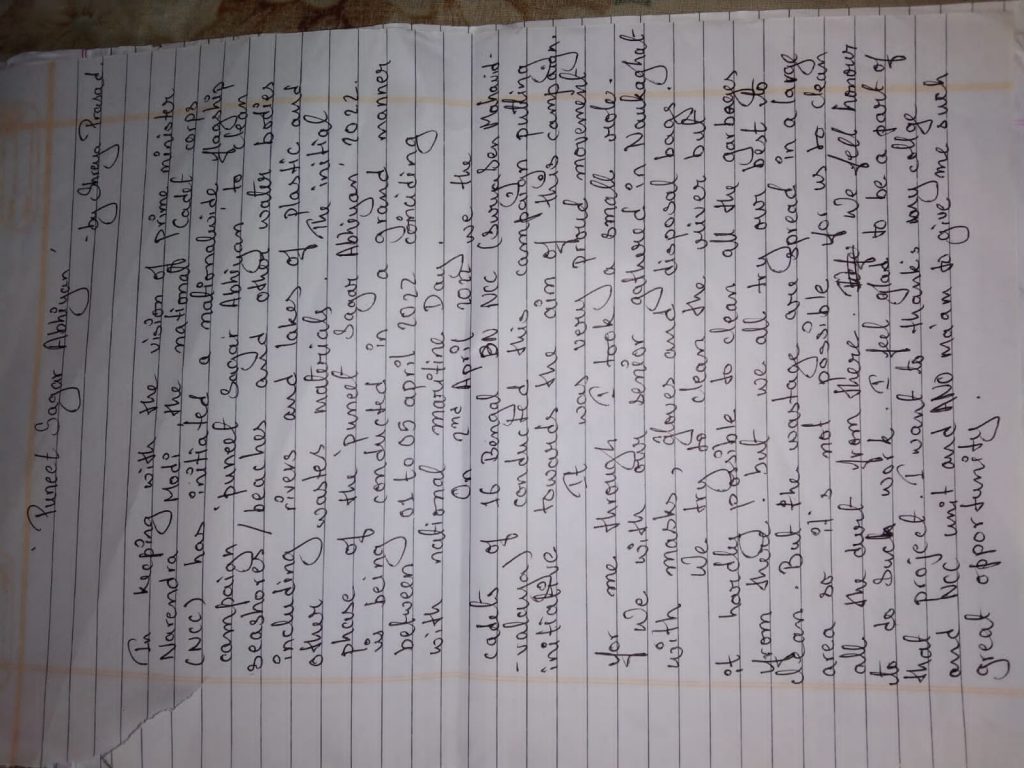 'Puneet Sagar Abhiyan'
- by Shreya Prasad
In keeping with the vision of Prime minister
Narendra Modi the national Cadet corps
(NCC) has initiated a nationalwide flagship
campaign 'puneet sagar Abhiyan' to clean
seashores/beaches and other water bodies
including rivers and lakes of plastic and
other wastes materials. The initial
phase of the 'puneet Sagar Abhiyan' 2022.
is being conducted in a grand manner
between 01 to 05 april 2022 coinciding
with national maritine Day.
On 2nd April 2022 we the
cadets of 16 Bengal BN NC (Surya Sen Mahavid-
-valeya) conducted this campaign putting
initiative towards the aim of this campaign.
It was very proud movement
for me through I took a small role.
We with our senior gathered in Naukaghat
with masks, gloves and disposal bags.
We try to clean the river but
it hardly possible to clean all the garbages
from there but we all try our best to
clean. But the wastage are spread in a large
area so it's not possible for us to clean
all the dirt from there. We fell honour
to do such work. I feel glad to be a part of
that project. I want to thanks my collge
and NCC unit and ANO ma'am to give me such
great opportunity.